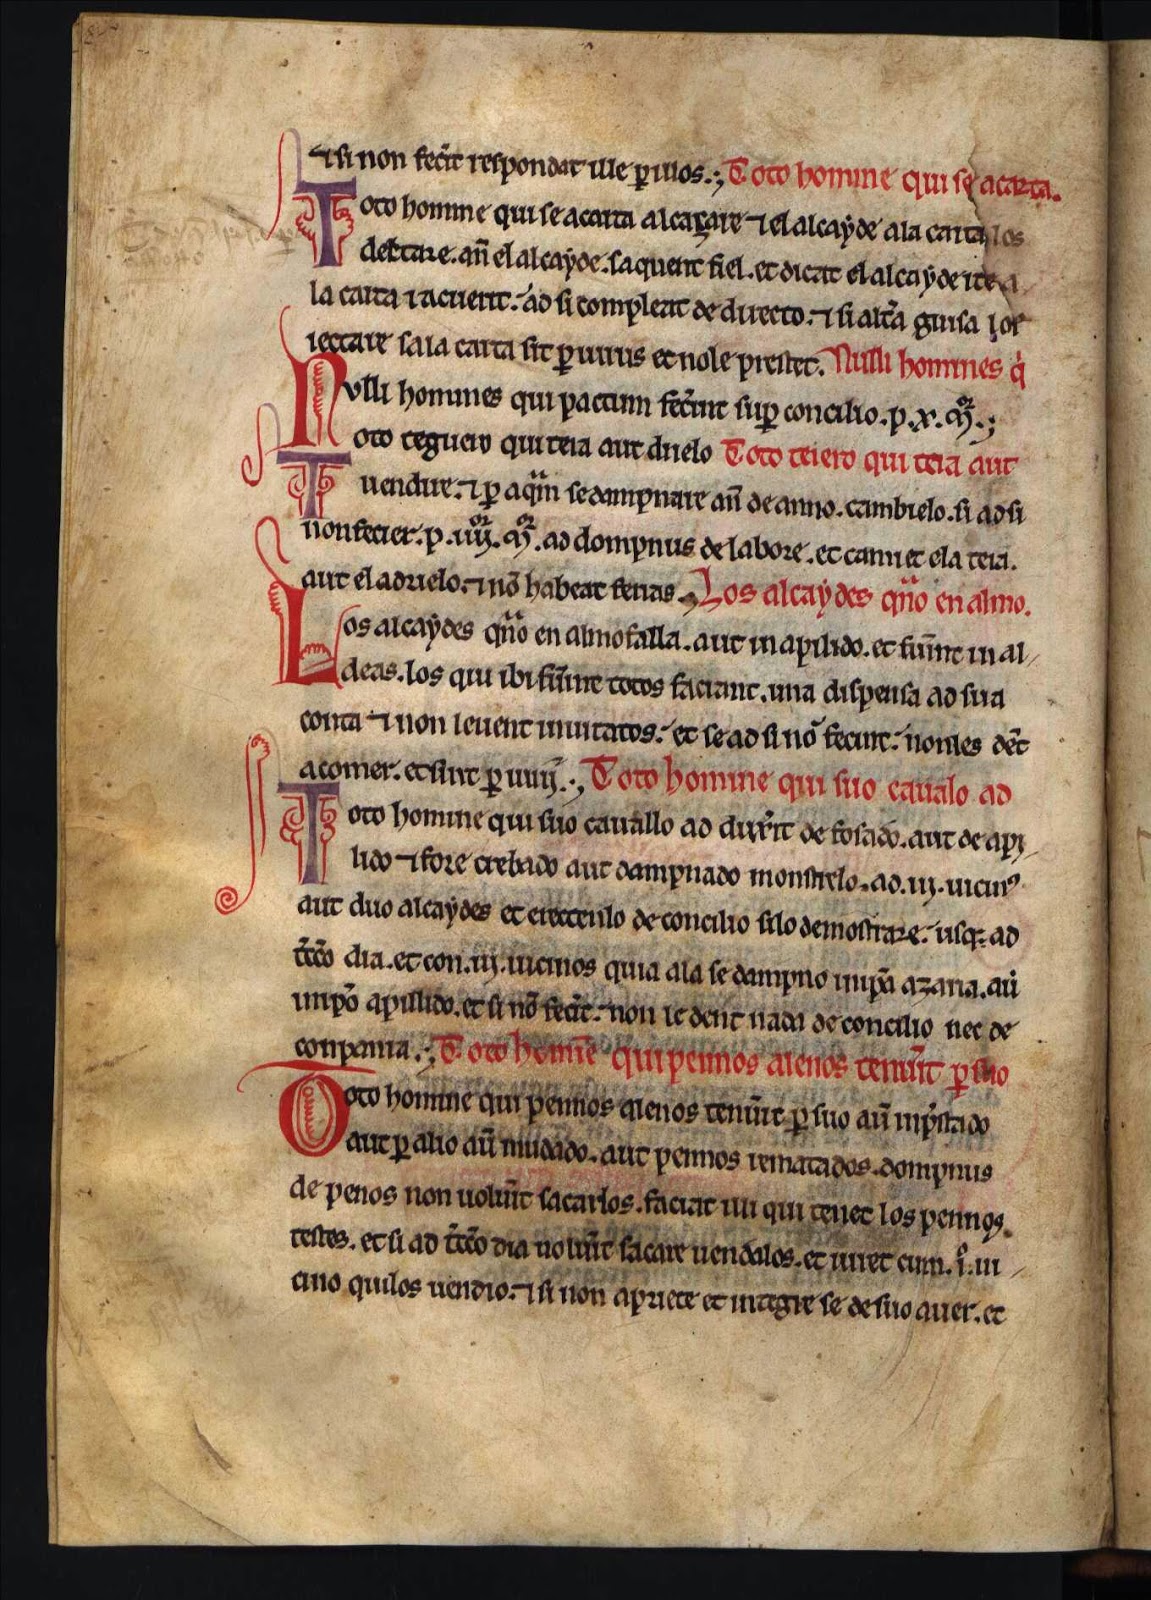 ⁊ si non fec̃it respondat ille ꝑ illos.; Toto homine qui se acarta.
Toto homine qui se acarta al caȓare ⁊ el alcayde ala carta los
dectare. añ el alcayde. saquent fiel. et dicat el alcayde ite a
la carta ⁊ acuerit. ad si compleat de directo. ⁊ si alt̃a guisa los
iectare sala carta sit ꝑ iurus et nole prestet. Nulli homines q̇
Nvlli homines qui pactum fec̃int sup̃ concilio. p. x. mr̃.;
Toto teguero qui teia aut druelo Toto teiero qui teia aut
uendire. ⁊ ꝑ aqm̃ se dampnare añ de anno. cambielo. si ad si
non fecier. p. iiij. mr̃. ad dompnus de labore. et cannet ela teia.
aut el adruelo. ⁊ nõ habeat ferias. Los alcaydes qño en almo.
Los alcaydes qño en almofalla. aut in apilido. et fueñt in al/
deas. los qui ibi fueñt totos faciant. una dispensa ad sua
conta ⁊ non leuent inuitatos. et se ad si nõ fecint. nonles deñt
acomer. et sint ꝑ iuriȷ.; Toto homine qui suo caualo ad
Toto homine qui suo cauallo ad dux̃it de fosado. aut de api/
lido ⁊ fore crebado aut dampnado monstrelo. ad .iij. uicinꝰ
aut duo alcaydes et erecteulo de concilio si lo demostrare. usqꝫ ad
t̃cio dia. et con .iij. uicinos quia ala se dampno in ip̃a azaria. aũ
in ip̃o apillido. et si nõ fec̃it. non le dent nada de concilio nec de
conpania.; Toto homĩe qui pennos alenos tenũit ꝑ suo
Toto homine qui pennos alenos tenũit ꝑ suo aũ inp̃stado
aut ꝑ alio aũ mudado. aut pennos rematados. dompnus
de penos non uolũit sacarlos. faciat illi qui tenet los pennos.
testes. et si ad t̃cio dia nolũit sacare uendalos. et iuret cum .i̊. ui/
cino quilos uendio. ⁊ si non apriete et integre se de suo auer. et